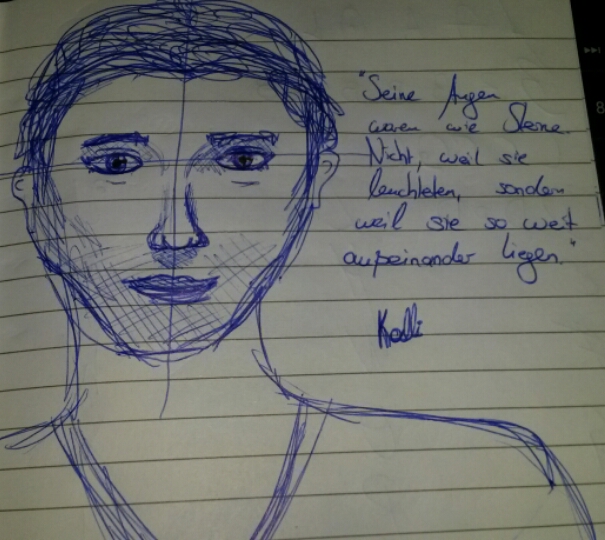 "Seine Augen
waren wie Sterne.
Nicht, weil sie
leuchteten, sondern
weil sie so weit
auseinander liegen."
8